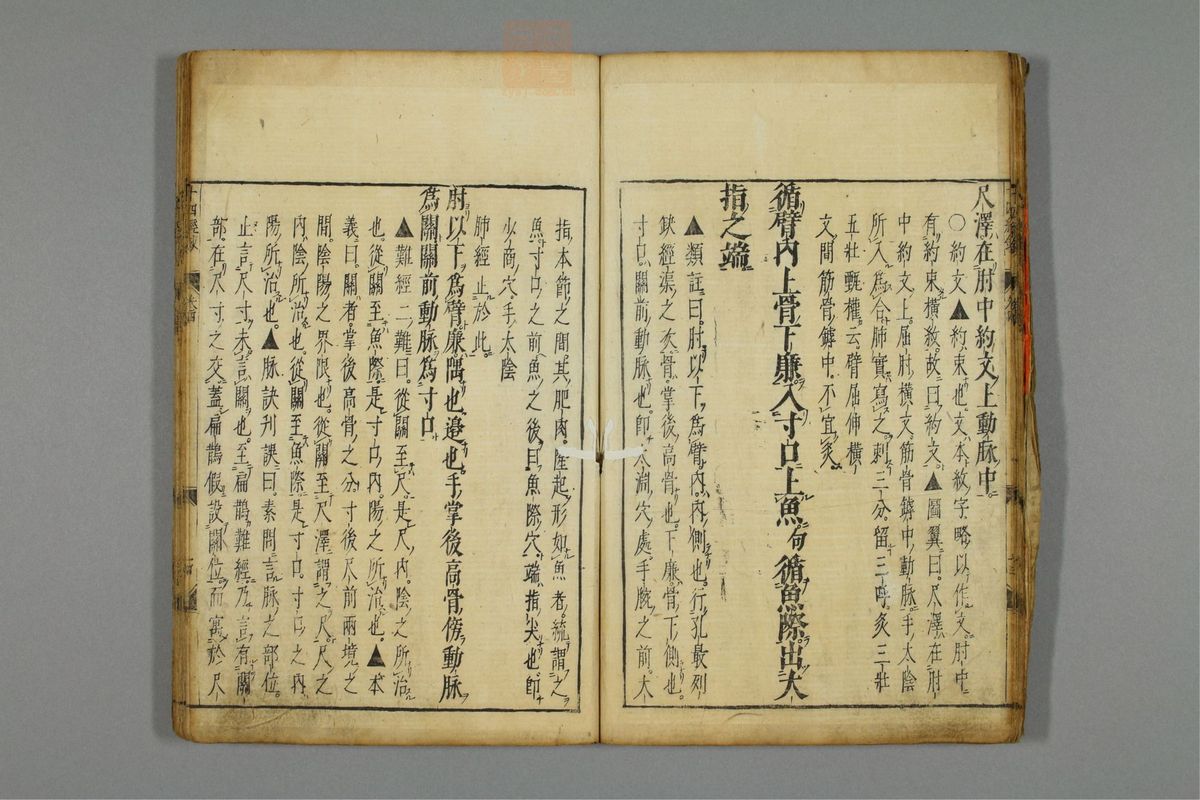 尺澤在肘中約文上動脉中
〇約文▲約束也。文、本紋字略以作文。肘中
有約束橫紋故曰約文。▲圖翼曰。尺澤在肘
中約文上。屈肘橫文。筋骨罅中動脉。手太陰
所入爲合。肺實寫之。刺三分。留三呼。灸三壯
五壯甄權云。臂屈伸橫
文間筋骨罅中。不宜灸
循臂内上骨下廉入寸口上魚句循魚際出大
指之端
▲類註曰。肘以下、爲臂内。内側也。行孔最列
缺經渠之次骨。掌後高骨也。下廉。骨下側也。
寸口。關前動脉也。即太淵穴處。手腕之前。大
指本節之間其肥肉隆起形如魚者。統謂之
魚寸口之前魚之後曰魚際穴。端指尖也。即
少商穴。手太陰
肺經止於此。
肘以下爲臂廉隅也邊也手掌後高骨傍動脉
爲關關前動脉爲寸口
▲難經二難曰從關至尺。是尺内。陰之所治
也。從關至魚際是寸口内。陽之所治也。▲本
義曰。關者。掌後高骨之分。寸後尺前兩境之
間。陰陽之界限也。從關至尺澤謂之尺。尺之
内。陰所治也。從關至魚際是寸口。寸口之内
陽所治也。▲脉訣刋誤曰。素問言脉之部位。
止言尺寸。未言關也。至扁鵲難經。乃言有關
部。在尺寸之交。蓋扁鵲假設關位。而寓於尺